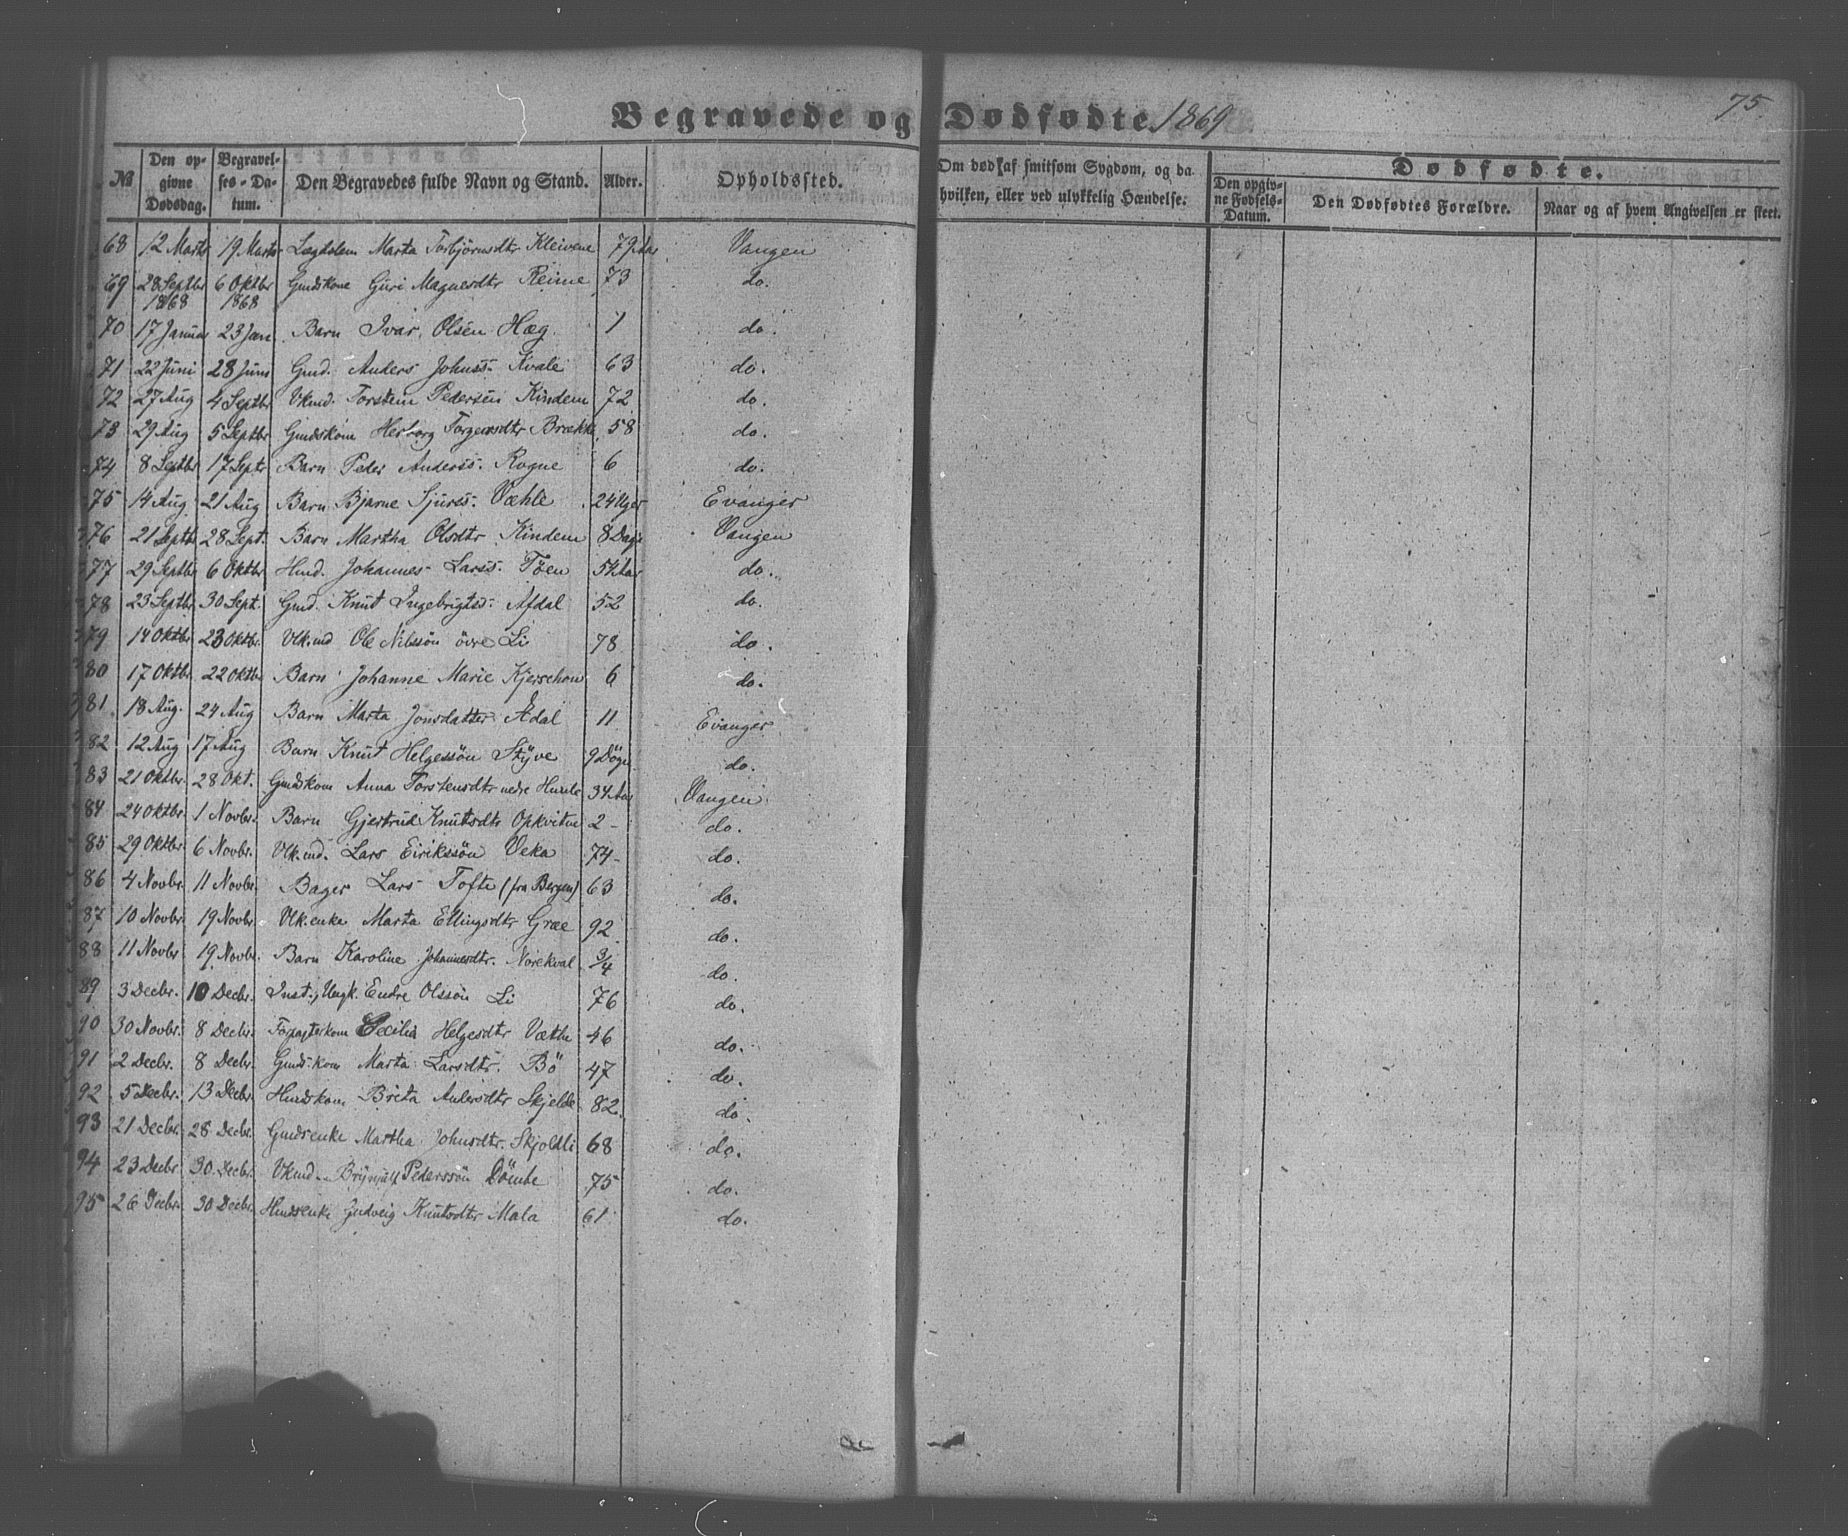 Begravede og Dødfødte 1869
75.
№ Den opgivne Dødsdag. Begravelses-Datum. Den Begravedes fulde Navn og Stand. Alder. Opholdssted. Om død af smitsom Sygdom, og da hvilken, eller ved ulykkelig Hændelse. Dødfødte. Den opgivne Fødsels-Datum. Den Dødfødtes Forældre. Naar og af hvem Angivelsen er skeet.
68 12 Marts 19 Marts Lægdslem Marta Torbjørnsdtr Kleivene 79 Aar Vangen
69 28 Septbr 1868 6 Oktbr 1868 Gmdskone Guri Magnesdtr Reime 73 do.
70 17 Januar 23 Jan Barn Ivar Olsen Hæg 1 do.
71 22 Juni 28 Juni Gmd. Anders Johnss. Kvale 63 do.
72 27 Aug 4 Septbr Vkmd. Torstein Pedersen Kindem 72 do.
73 29 Aug 5 Septbr Gmdskone Herborg Torgersdtr Brække 58 do.
74 8 Septbr 17 Septr Barn Peder Anderss. Rogne 6 do.
75 14 Aug 21 Aug Barn Bjarne Sjurss. Væhle 24 Uger Evanger
76 21 Septb 28 Sept. Barn Martha Olsdtr Kindem 8 Dage Vangen
77 29 Septbr 6 Oktbr Hmd. Johannes Larss. Töen 54 Aar do.
78 23 Septbr 30 Sept. Gmd. Knut Ingebrigts. Afdal 52 do.
79 14 Oktbr 23 Oktbr. Vlk.md Ole Nilssön övre Li 78 do.
80 17 Oktbr. 22 Oktbr Barn Johanne Marie Kjerschow 6 do.
81 18 Aug. 24 Aug Barn Marta Jonsdatter Ådal 11 Evanger
82 12 Aug 17 Aug Barn Knut Helgessön Styve 9 Dögn do.
83 21 Oktbr. 28 Okt. Gmdskom Anna Torstensdtr nedre Humle 34 Aar Vangen
84 24 Oktbr. 1 Novbr. Barn Gjertrud Knutsdtr Opkvitne 2 - do.
85 29 Oktbr. 6 Novbr. Vlk.md. Lars Eirikssön Veka 74 - do.
86 4 Novbr. 11 Novbr. Bager Lars Tofte (fra Bergen) 63 do.
87 10 Novbr. 19 Novbr. Vlk.enke Marta Ellingsdtr Græe 92 do.
88 11 Novbr 19 Novbr. Barn Karoline Johannesdtr. Norekval 3/4 do.
89 3 Decbr. 10 Decbr. Inst., Ungk. Endre Olssön Li 76 do.
90 30 Novbr. 8 Decbr. Forpagterkom Cecilia Helgesdtr Væthe 46 do.
91 2 Decbr. 8 Decbr. Gmdskom Marta Larsdtr. Bö 47 do.
92 5 Decbr. 13 Decbr. Hmdskom Brita Andersdtr Skjelde 82 do.
93 21 Decbr. 28 Decbr. Gmdsenke Martha Johnsdtr. Skjoldli 68 do.
94 23 Decbr. 30 Decbr. Vkmd. Brynjulf Pederssön Dömbe 75 do.
95 26 Decbr. 30 Decbr. Hmdsenke Gudveig Knutsdtr Mala 61 do.